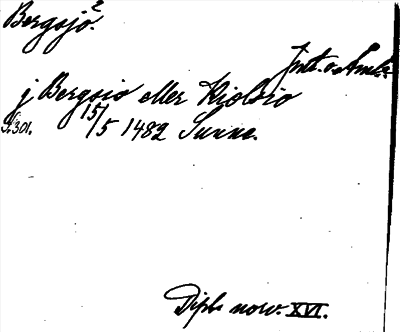 Bergsjö. 2
Jmt. o. Åmb.
j Bergsio eller Kiolsio
S.301. 15/5 1482 Sunne.
Dipl. norv. XVI.